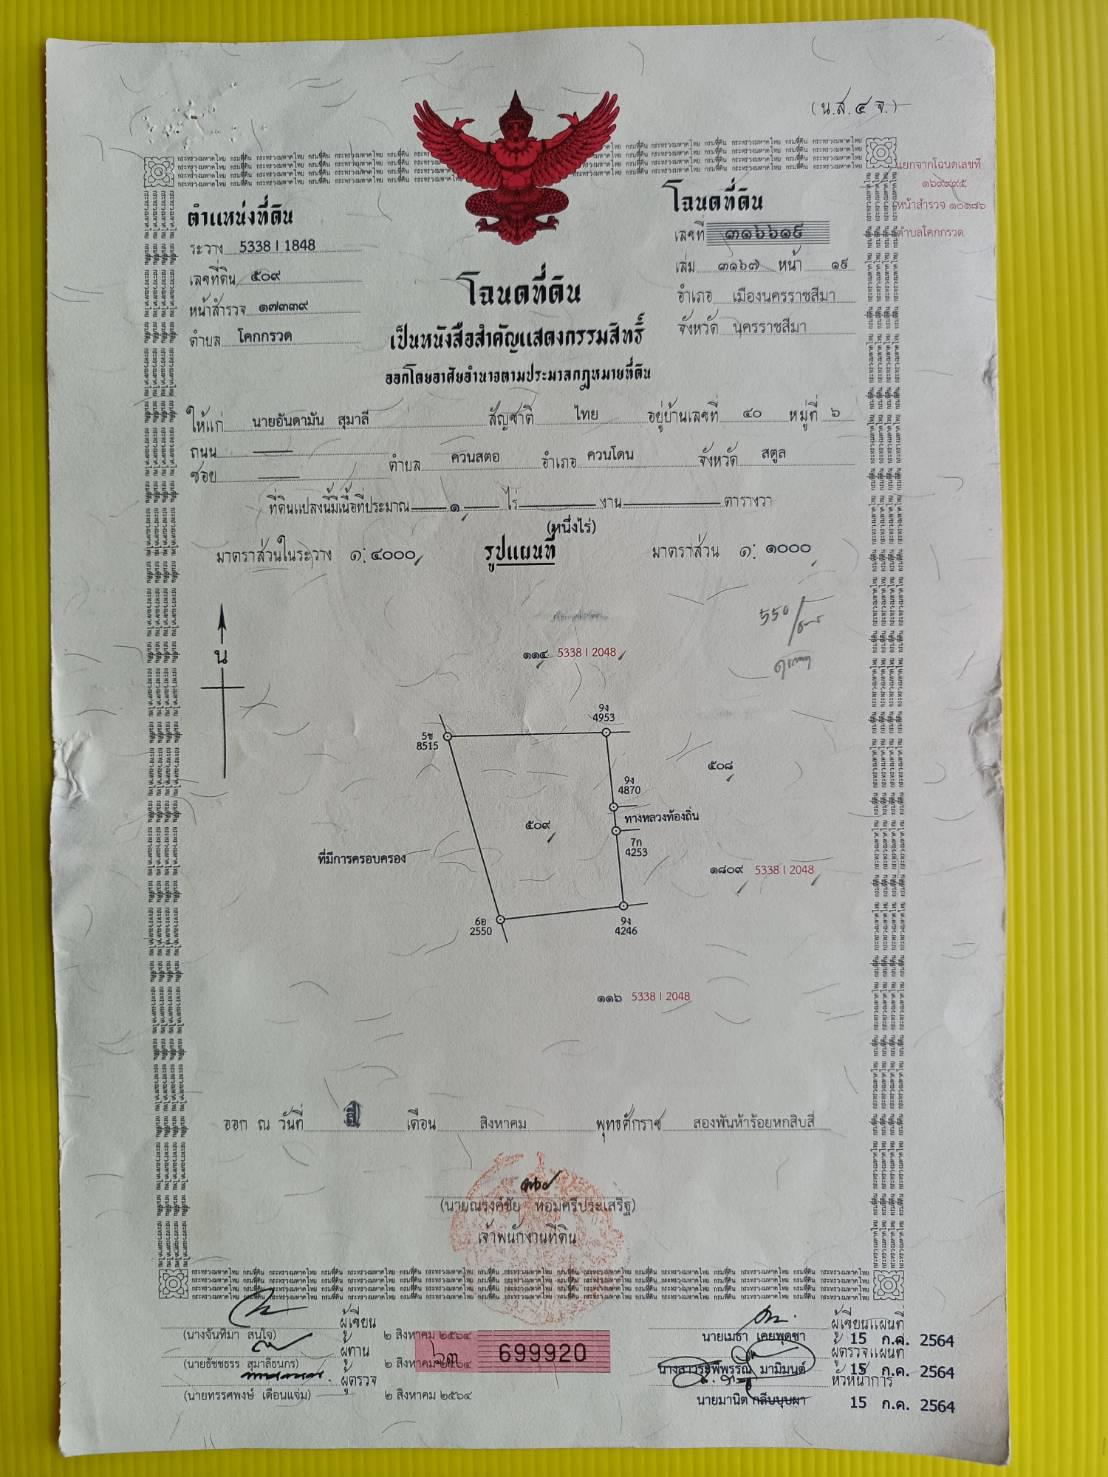 (น.ส.๔ จ.)
แยกจากโฉนดเลขที่
๑๖๙๙๙๕
หน้าสำรวจ ๑๐๑๘๖
ตำบลโคกกรวด
ตำแหน่งที่ดิน
ระวาง 5338 I 1848
เลขที่ดิน ๕๐๙
หน้าสำรวจ ๑๗๓๓๙
ตำบล โคกกรวด
โฉนดที่ดิน
เลขที่ ๓๑๖๖๑๙
เล่ม ๓๑๖๗ หน้า ๑๙
อำเภอ เมืองนครราชสีมา
จังหวัด นครราชสีมา
โฉนดที่ดิน
เป็นหนังสือสำคัญแสดงกรรมสิทธิ์
ออกโดยอาศัยอำนาจตามประมวลกฎหมายที่ดิน
ให้แก่ นายอันดามัน สุมาลี สัญชาติ ไทย อยู่บ้านเลขที่ ๔๐ หมู่ที่ ๖
ถนน
ซอย ตำบล ควนสตอ อำเภอ ควนโดน จังหวัด สตูล
ที่ดินแปลงนี้มีเนื้อที่ประมาณ ๑ ไร่ งาน ตารางวา
(หนึ่งไร่)
มาตราส่วนในระวาง ๑:๔๐๐๐ รูปแผนที่ มาตราส่วน ๑: ๑๐๐๐
น
๑๑๔ 5338 I 2048
5ข
8515
9ง
4953
๕๐๘
9ง
4870
ทางหลวงท้องถิ่น
๕๐๙
7ก
4253
ที่มีการครอบครอง
๑๘๐๙ 5338 I 2048
6อ
2550
9ง
4246
๑๑๖ 5338 I 2048
ออก ณ วันที่ เดือน สิงหาคม พุทธศักราช สองพันห้าร้อยหกสิบสี่
(นายณรงค์ชัย หอมศรีประเสริฐ)
เจ้าพนักงานที่ดิน
ผู้เขียน
(นางจันทิมา สนใจ) ๒ สิงหาคม ๒๕๖๔
ผู้ทาน
(นายธัชธรร สุมาลีธนกร) ๒ สิงหาคม ๒๕๖๔
ผู้ตรวจ
(นายทรรศพงษ์ เดือนแจ่ม) ๒ สิงหาคม ๒๕๖๔
๖๓ 699920
ผู้เขียนแผนที่
นายเมธา เคยพุดซา 15 ก.ค. 2564
ผู้ตรวจแผนที่
มามิมนต์ 15 ก.ค. 2564
หัวหน้าการ
นายมานิต กลีบบุบผา 15 ก.ค. 2564